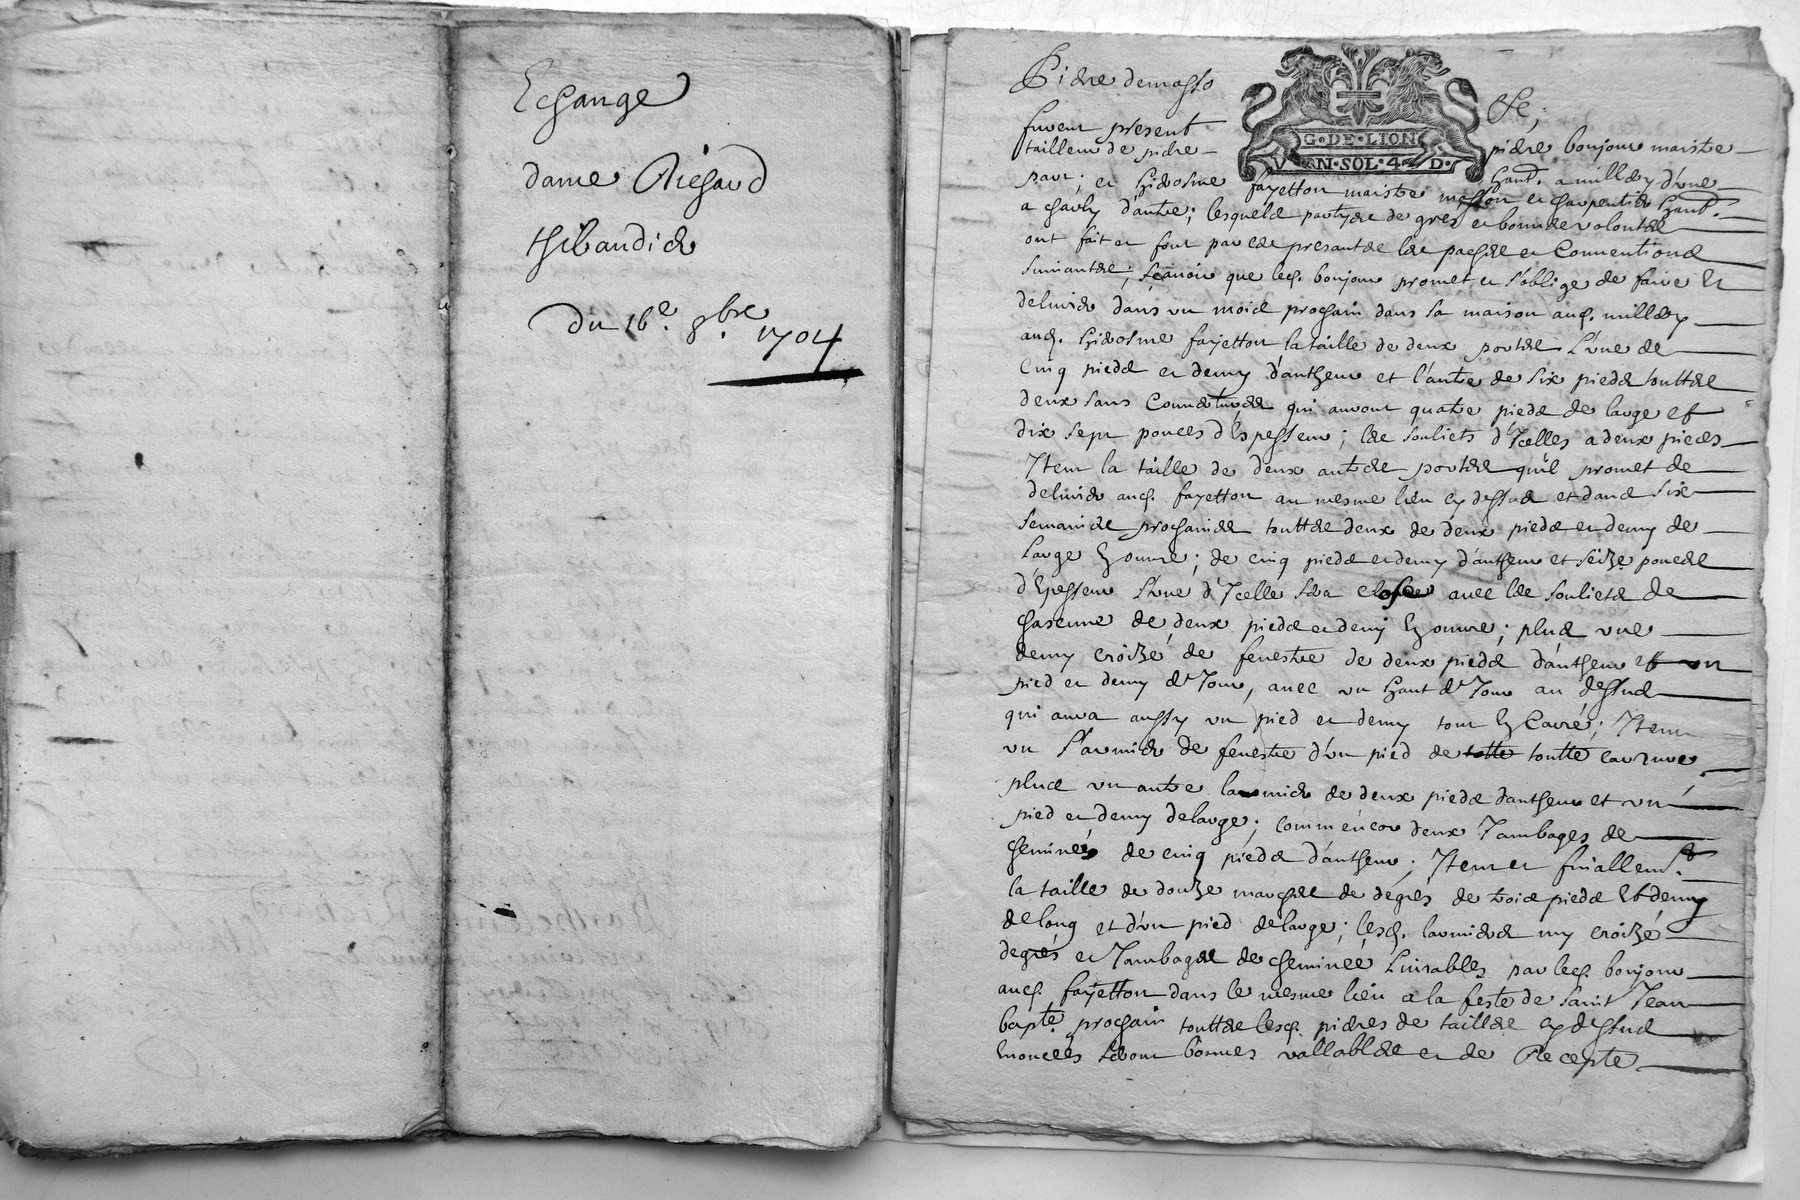 Eschange
dame Richard
thibaudier
du 16e. 8bre 1704
G·DE·LION
VN·SOL·4·D·
furent present
tailleur de pierre
pierre bonjour maistre
part; et hierosme fayetton maistre masson et charpentier habt.
d'autre; lesquelles partyes de grez et bonnes volontes
ont fait et font par ces presantes les paches et Conventions
suivantes; scavoir que led. bonjour promet et s'oblige de faire et
delivrer dans un mois prochain dans sa maison aud. millery
aud. hierosme fayetton la taille de deux portes l'une de
Cinq pieds et demy d'autheur et l'autre de six pieds touttes
deux sans Couvertures qui auront quatre pieds de large et
dix sept pouces d'espesseur; les souliets d'Icelles a deux pieces
Item la taille de deux autres portes qu'il promet de
delivrer aud. fayetton au mesme lieu cy dessus et dans six
semaines prochaines touttes deux de deux pieds et demy de
large; de cinq pieds et demy d'autheur et seize pouces
d'Epesseur l'une d'Icelle sera avec les souliets de
de deux pieds et demy; plus une
demy croizé de fenestre de deux pieds d'autheur et un
pied et demy de Jour, avec un haut de Jour au dessus
qui aura aussy un pied et demy tout en Carré; Item
un larmier de fenestre d'un pied de toutte carrure,
plus un autre larmier de deux pieds d'autheur et un
pied et demy de large; comm'encor deux Jambages de
cheminée de cinq pieds d'autheur; Item et finallemt.
la taille de douze marches de degrés de trois pieds et demy
de long et d'un pied de large; lesd. larmiers my croizé
degrés et Jambages de cheminée livrables par led. bonjour
aud. fayetton dans le mesme lieu a la feste de saint Jean
bapte. prochain touttes lesd. pierres de tailles cy dessus
enoncées seront bonnes vallables et de Recepte